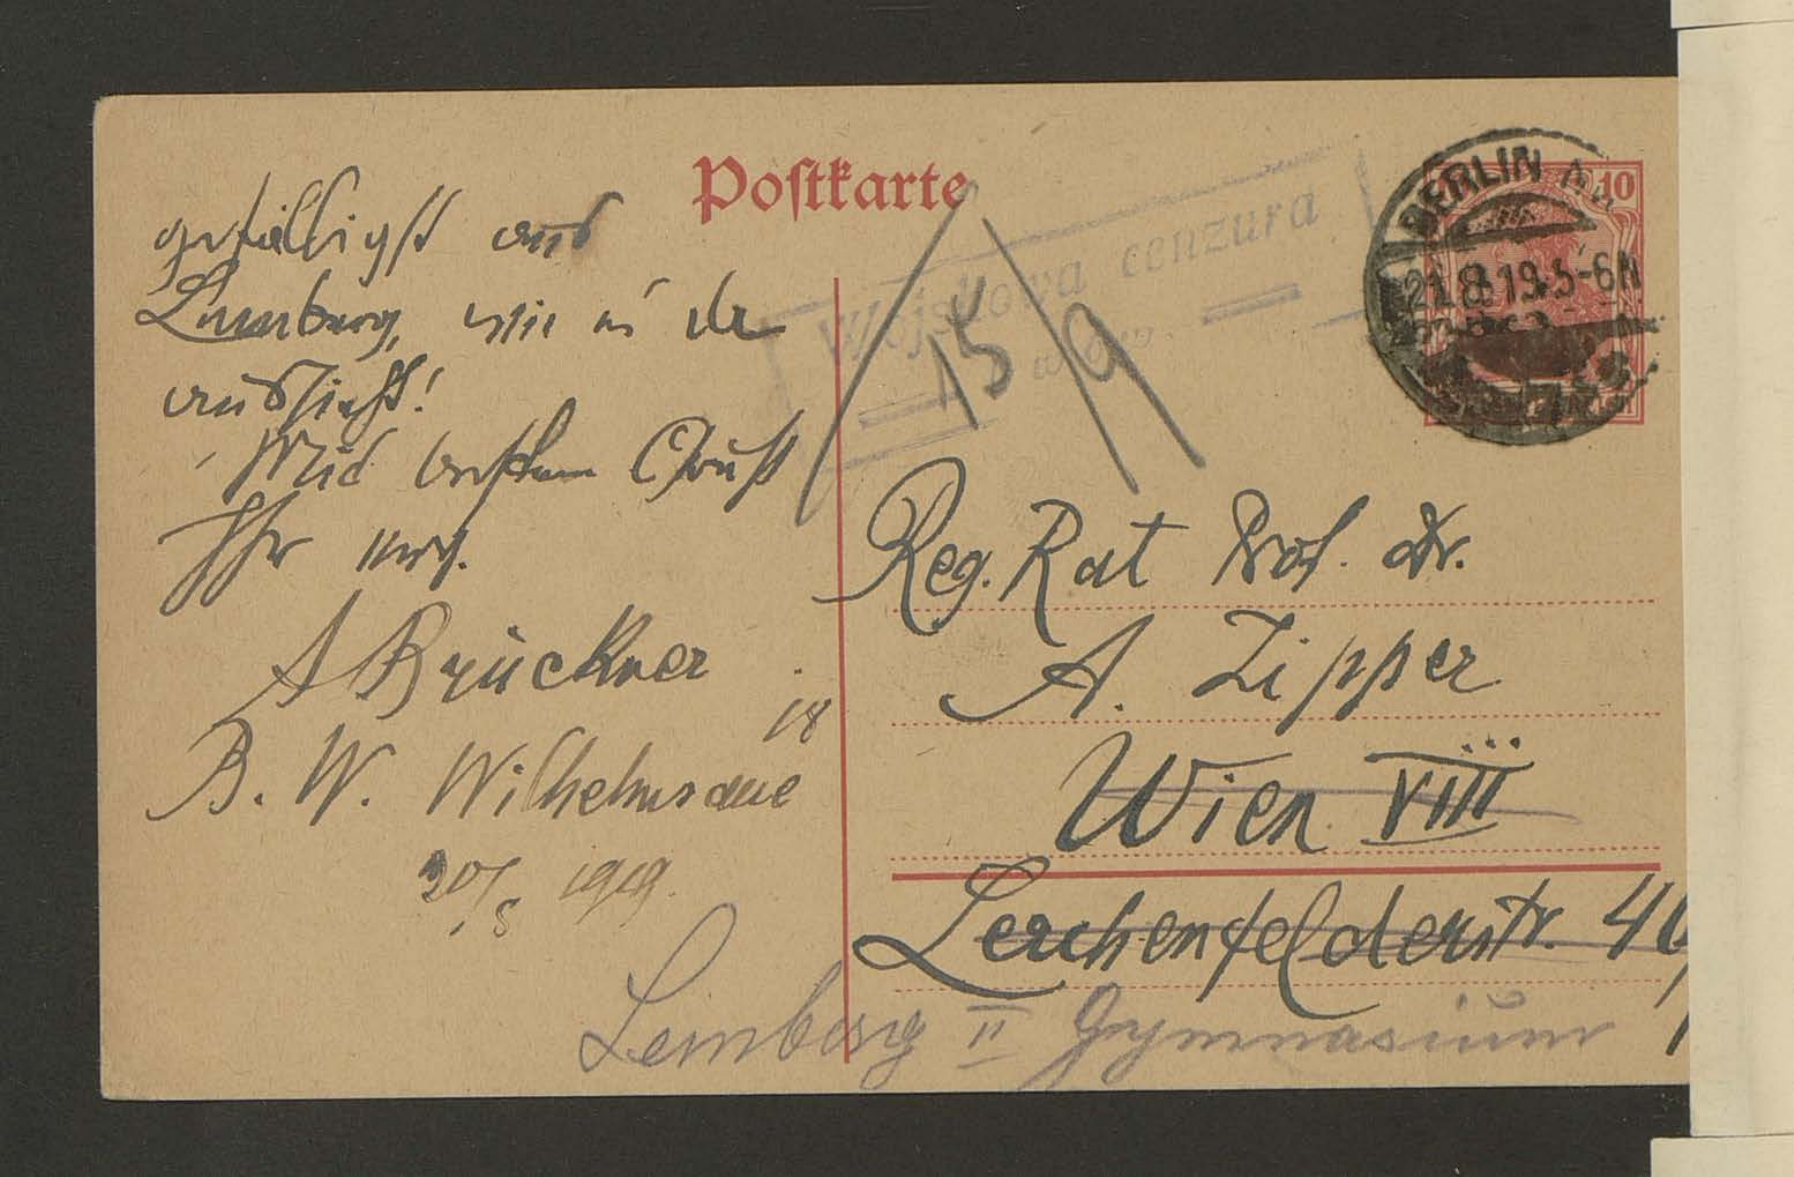 Postkarte
gefälligst aus
Lemberg, wie es da
aussieht!
Mit bestem Gruß
Ihr erg.
A Brückner
B. W. Wilhelmsaue 18
20/8 1919.
Wojskowa cenzura
15/9
BERLIN
21.8.19.5-6N
10
Reg. Rat Prof. Dr.
A. Zipper
Wien VIII
Lerchenfelderstr.
Lemberg II Gymnasium